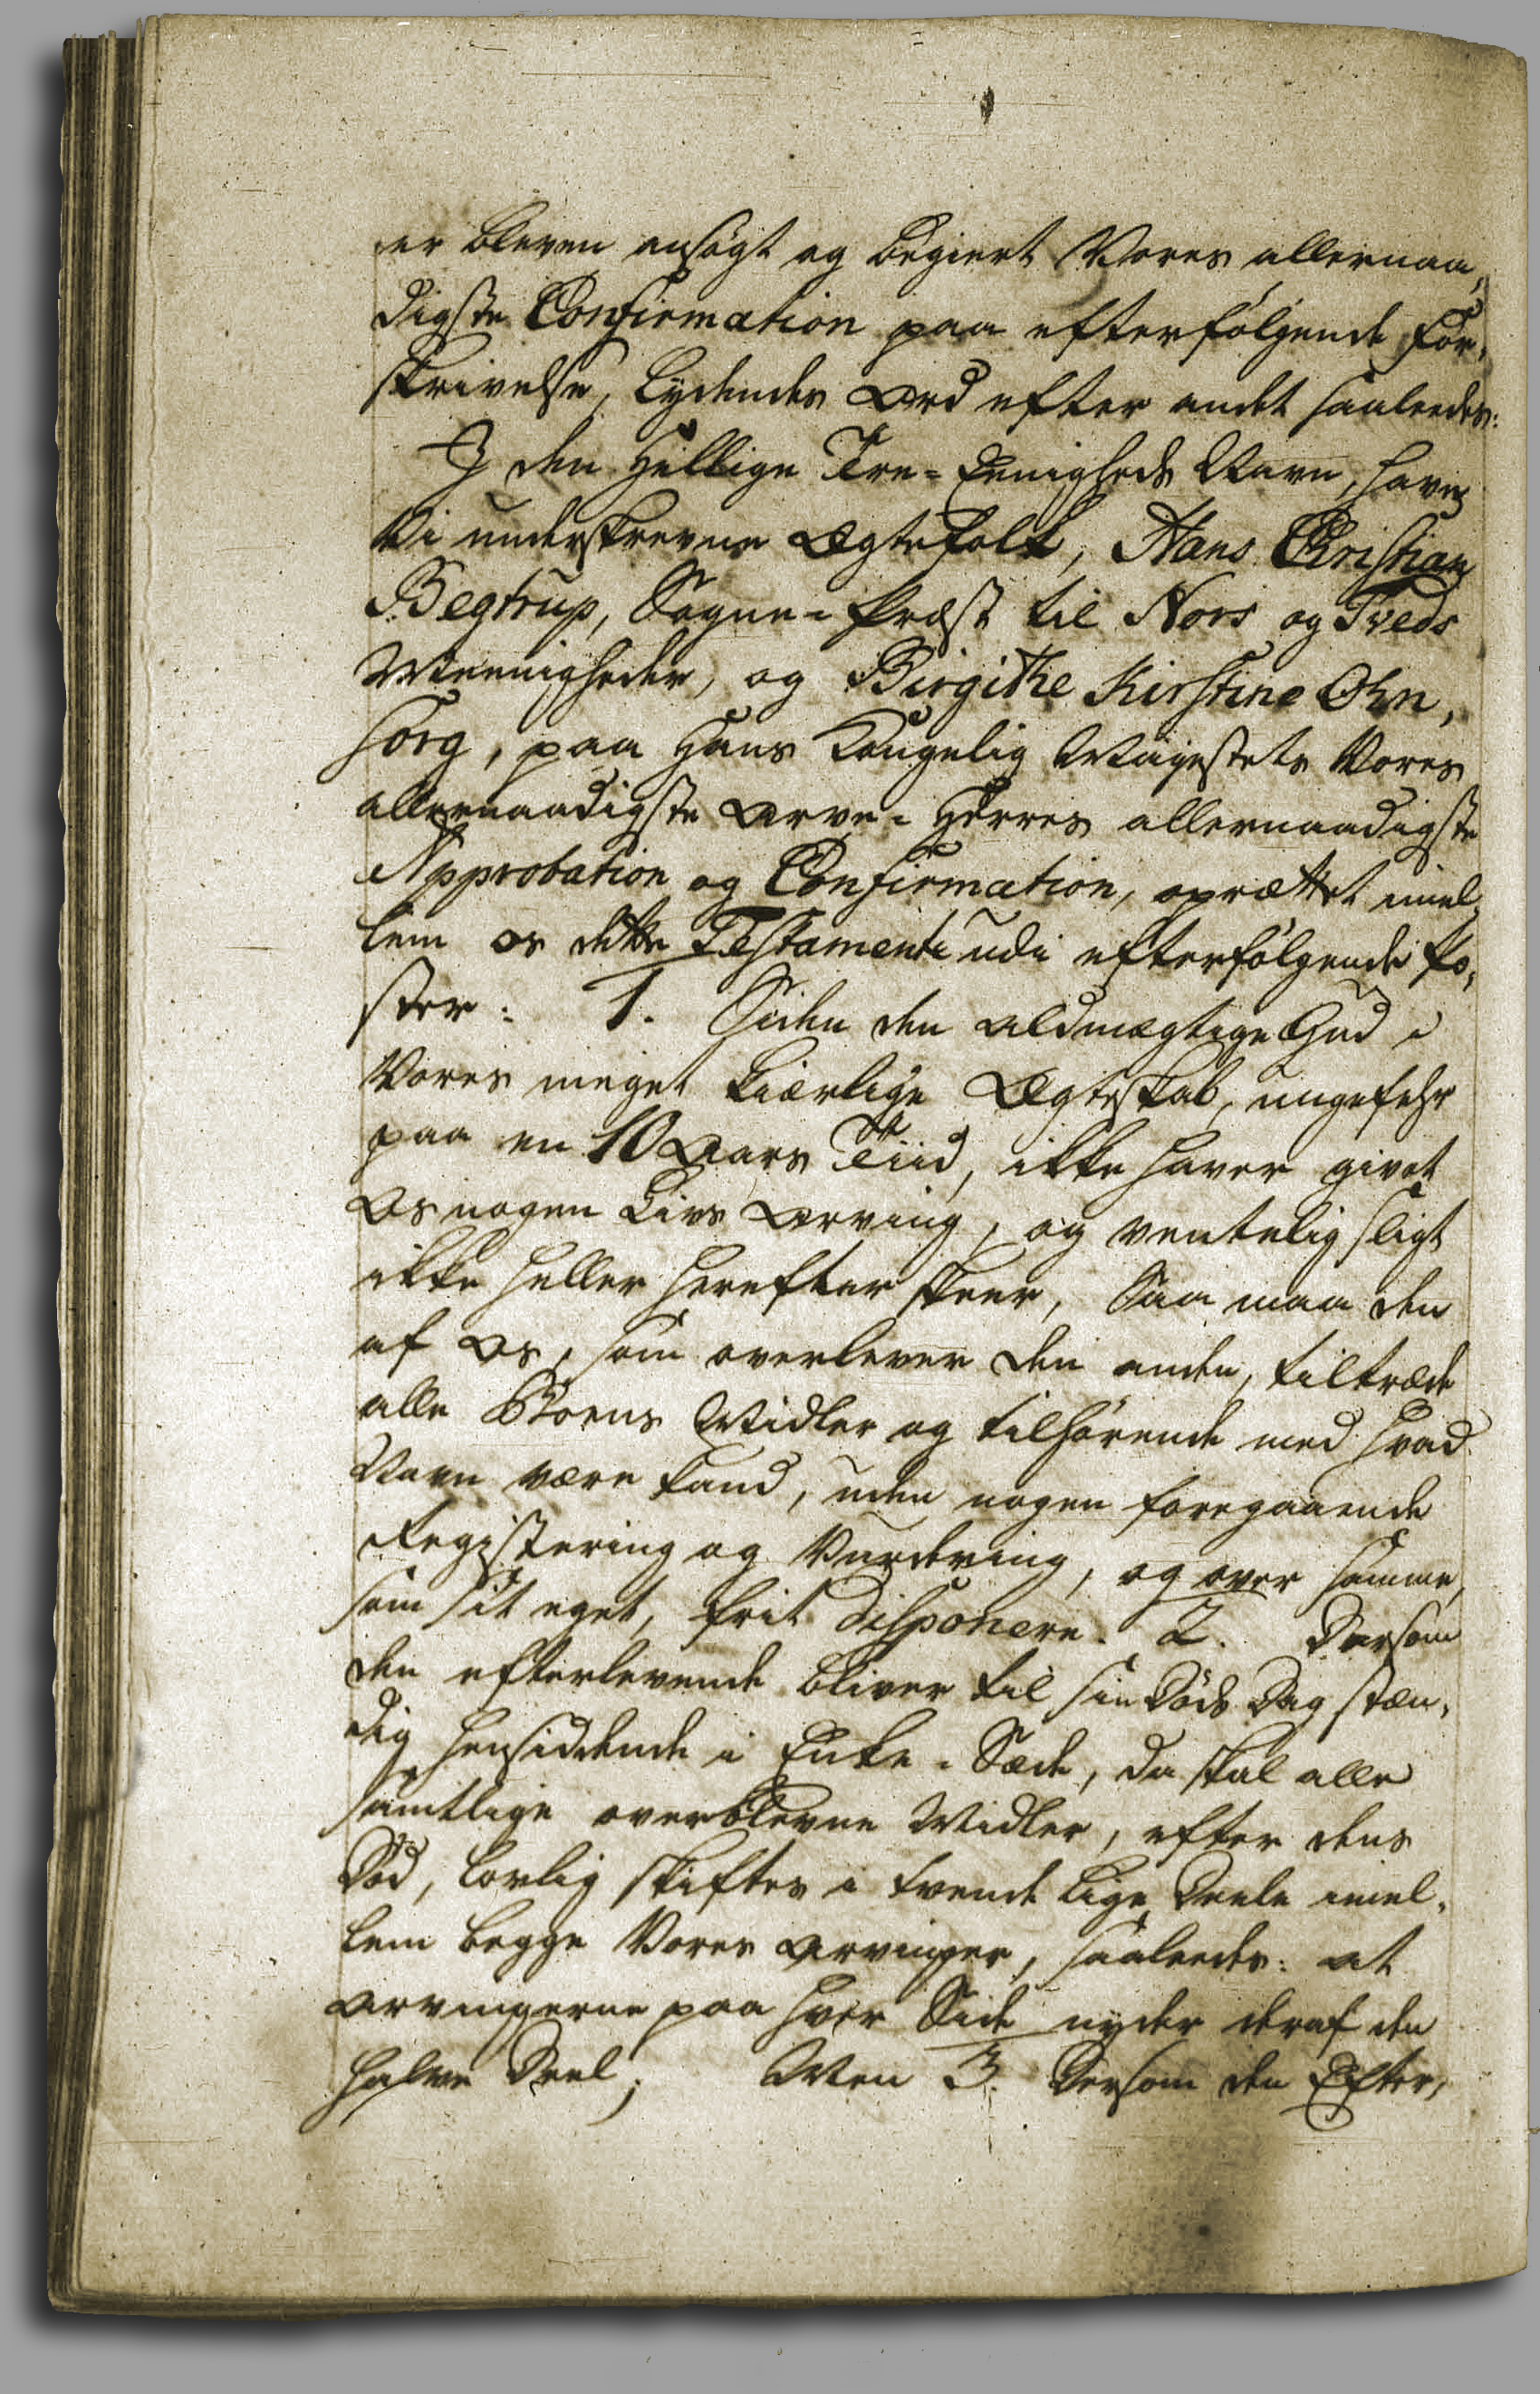 er bleven ansøgt og begiert Vores allernaa,
digste Confirmation paa efterfølgende For,
skrivelse, lydendes Ord efter andet saaledes:
J den Hellige Tre=Eenigheds Navn, have
Vi underskrevne Ægtefolk, Hans Christian
Begtrup, Sogne=Præst til Nors og Tveds
Meenigheder, og Birgithe Kirstine Ohn,
sorg, paa Hans Kongelig Mayestets Vores
allernaadigste Arve=Herres allernaadigste
Approbation og Confirmation, oprættet imel,
lem os dette Testamente udi efterfølgende Po,
ster: 1. Siden den Aldmægtige Gud i
Vores meget kiærlige Ægteskab, ungefehr
paa en 10 Aars Tiid, ikke haver givet
Os nogen Livs Arving, og ventelig sligt
ikke heller herefter skeer, Saa maa den
af Os, som overlever den anden, tiltræde
alle Boens Midler og tilhørende med hvad
Navn være kand, uden nogen foregaaende
Registering og Vurdering, og over samme,
som sit eget, frit disponere. 2. Dersom
den efterlevende bliver til sin Døds Dag stæn,
dig hensiddende i Enke=Sæde, da skal alle
samtlige overblevne Midler, efter dens
Død, lovlig skiftes i tvende lige Deele imel,
lem begge Vores Arvinger, saaledes: at
Arvingerne paa hver Side nyder deraf den
halve Deel; Men 3. Dersom den Efter,